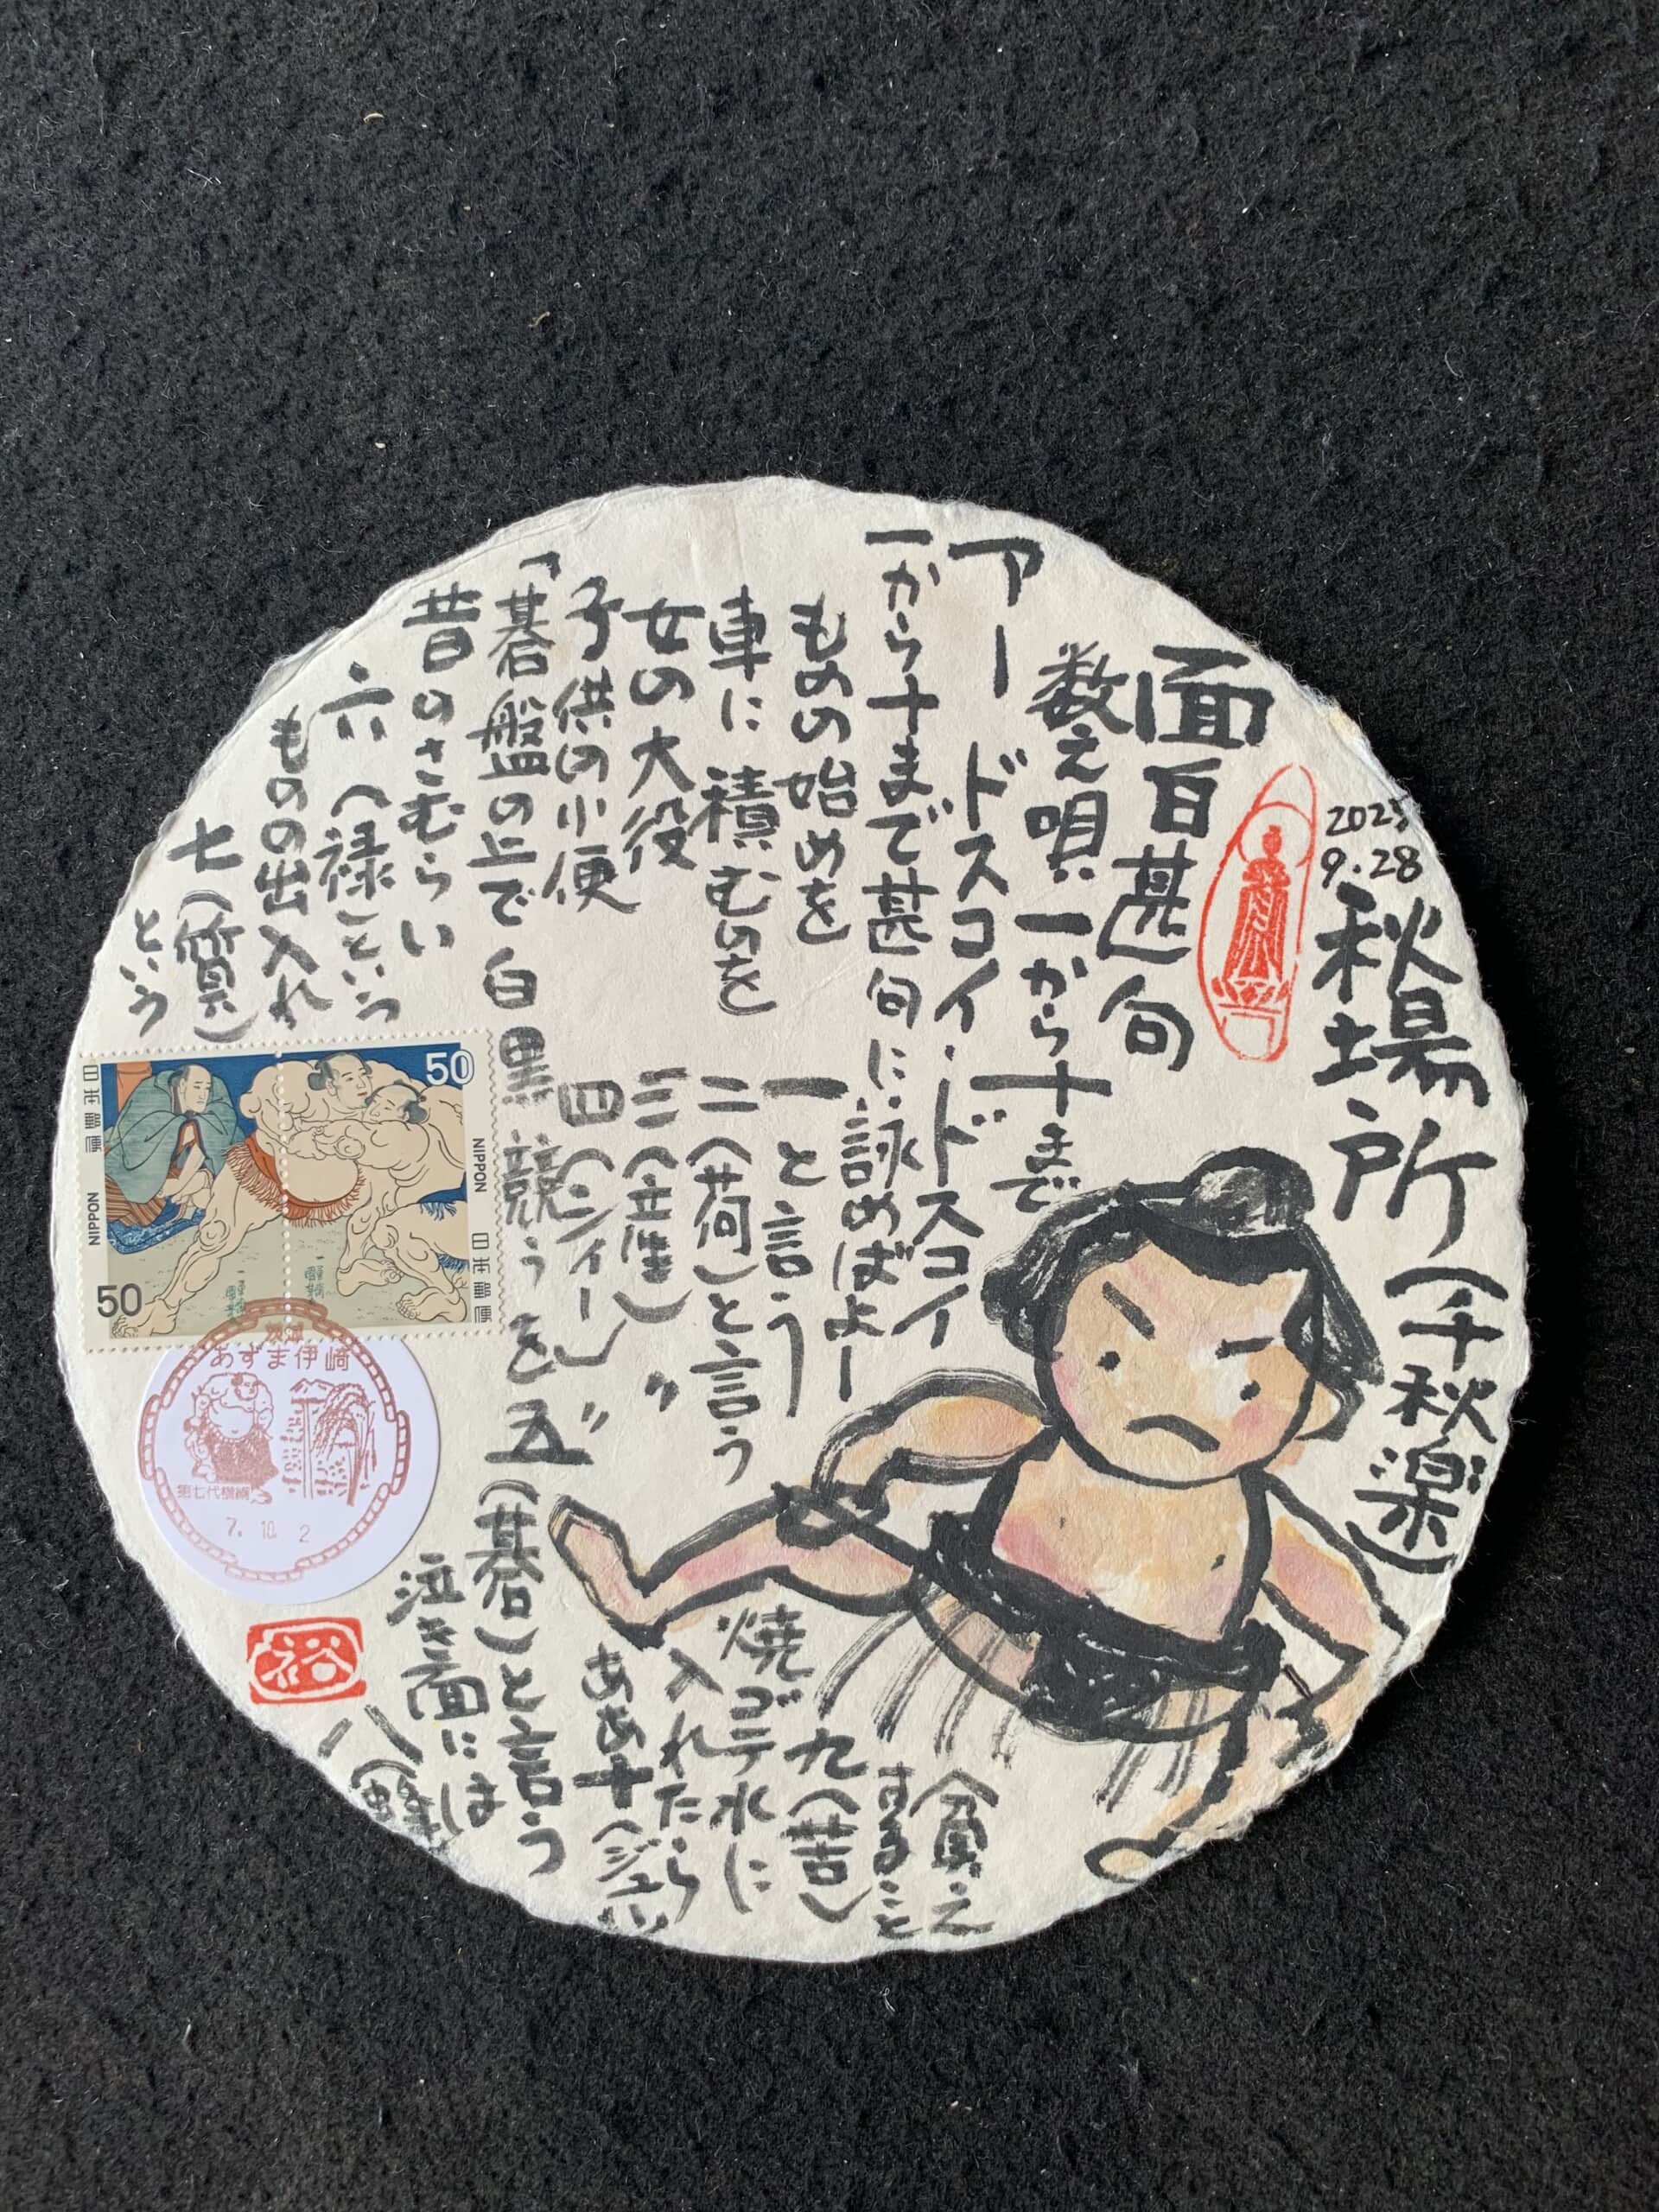 2025
9.28
秋場所(千秋楽)
面白甚句
数え唄 一から十まで
アー ドスコイ・ドスコイ
一から十まで甚句に詠めばよー
ものの始めを 一と言う
車に積むのを 二(荷)と言う
女の大役 三(産)〃
子供の小便 四(シィー)〃
「碁盤の上で白黒競うを五(碁)と言う
昔のさむらい
六(禄)という
ものの出入れ
七(質)
という
泣き面には
八(蜂
貧え
すること
九(苦)
焼ゴテ水に
入れたら
ああ十(ジュウ
日本郵便 NIPPON 50
50 NIPPON 日本郵便
茨城
あずま伊崎
第七代横綱
7. 10. 2
裕